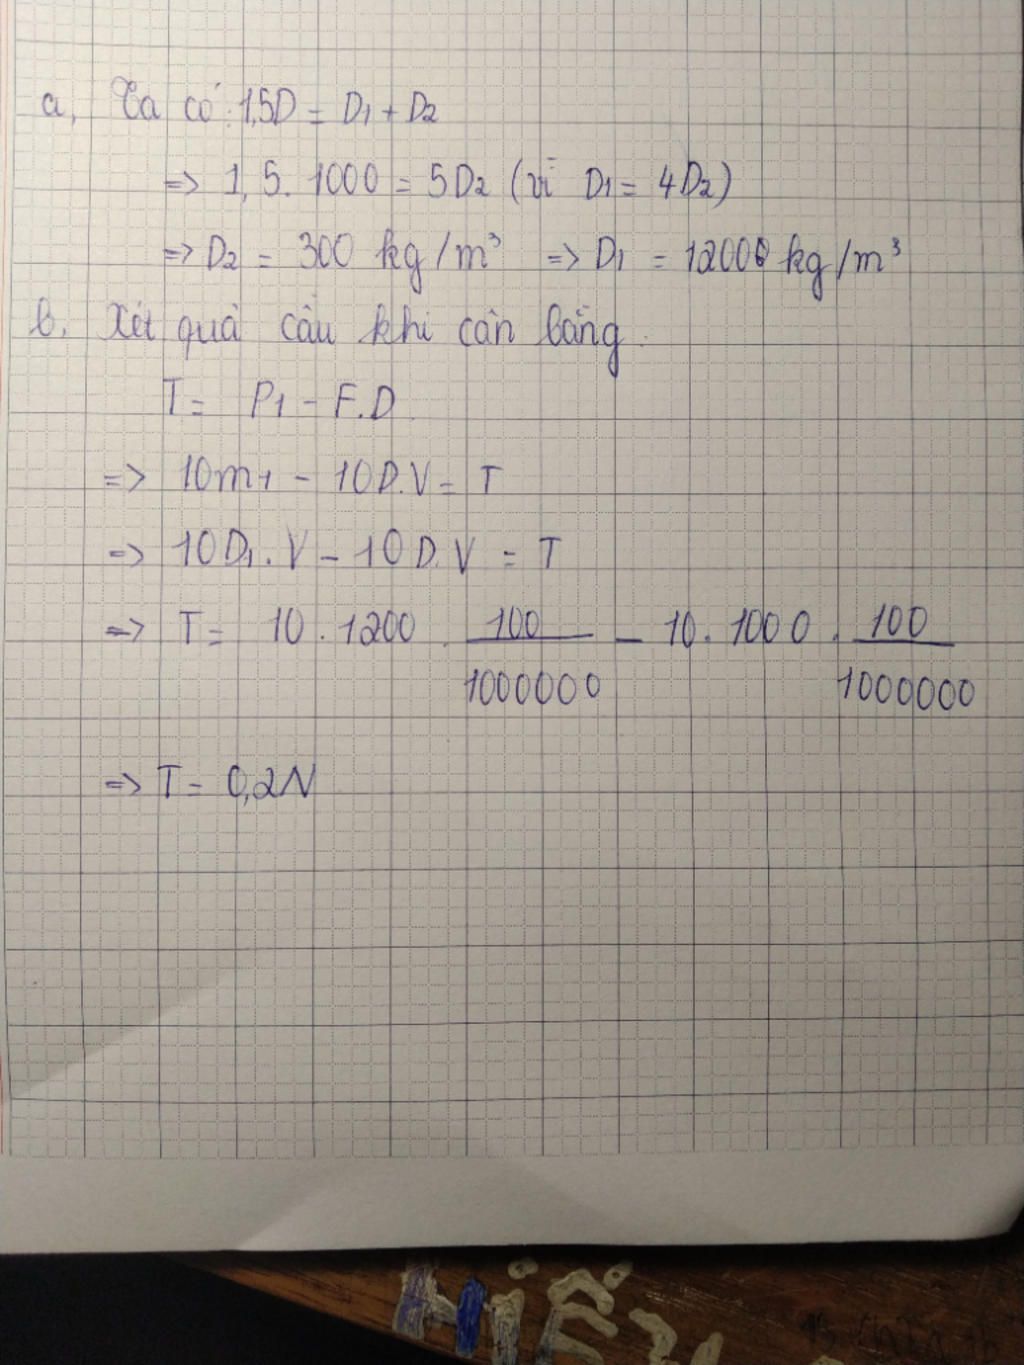 a, Ta có: 1,5D = D1 + D2
=> 1,5. 1000 = 5D2 (vì D1 = 4D2)
=> D2 = 300 kg/m³ => D1 = 12000 kg/m³
b. Xét quả cầu khi cân bằng.
T = P1 - F.D
=> 10m1 - 10D.V = T
=> 10D1.V - 10D.V = T
=> T = 10.1200.100/1000000 - 10.1000.100/1000000
=> T = 0,2N
HIẾU